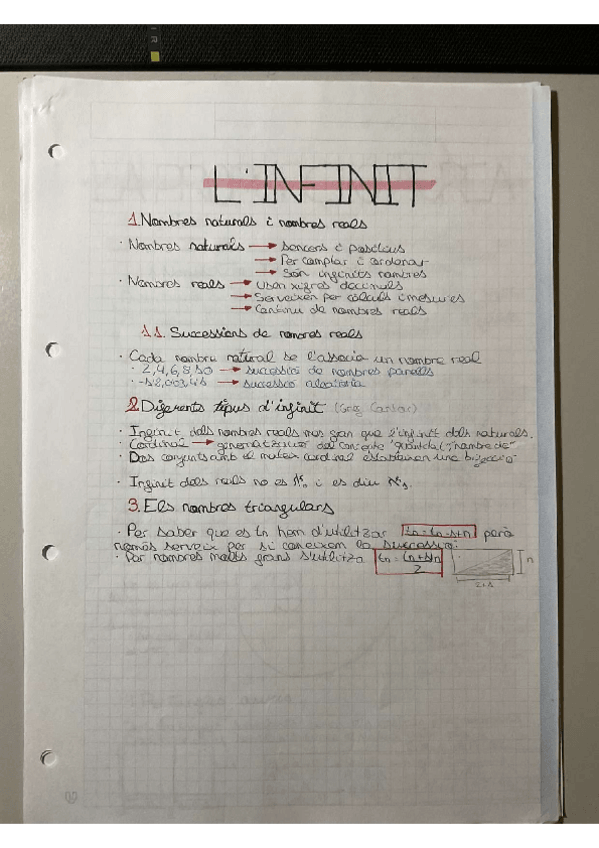 L'INFINIT
1. Nombres naturals i nombres reals
· Nombres naturals → sencers i positius
→ Per comptar i ordenar
→ Són infinits nombres
· Nombres reals → Usen xifres decimals
→ Serveixen per càlculs i mesures
→ Continu de nombres reals
1.1. Successions de nombres reals
· Cada nombre natural se l'associa un nombre real
· 2, 4, 6, 8, 10 → successió de nombres parells
→ successió aleatòria
2. Diferents tipus d'infinit (Georg Cantor)
· Infinit dels nombres reals més gran que l'infinit dels naturals.
· Cardinal → generalització del concepte "quantitat", "nombre de"
· Dos conjunts amb el mateix cardinal estableixen una bijecció
· Infinit dels reals no és i es diu
3. Els nombres triangulars
· Per saber que es tn hem d'utilitzar tn = tn-1+n però
només serveix per si coneixem la successió.
· Per nombres molts grans s'utilitza tn = (n+1)n / 2
n
n+1